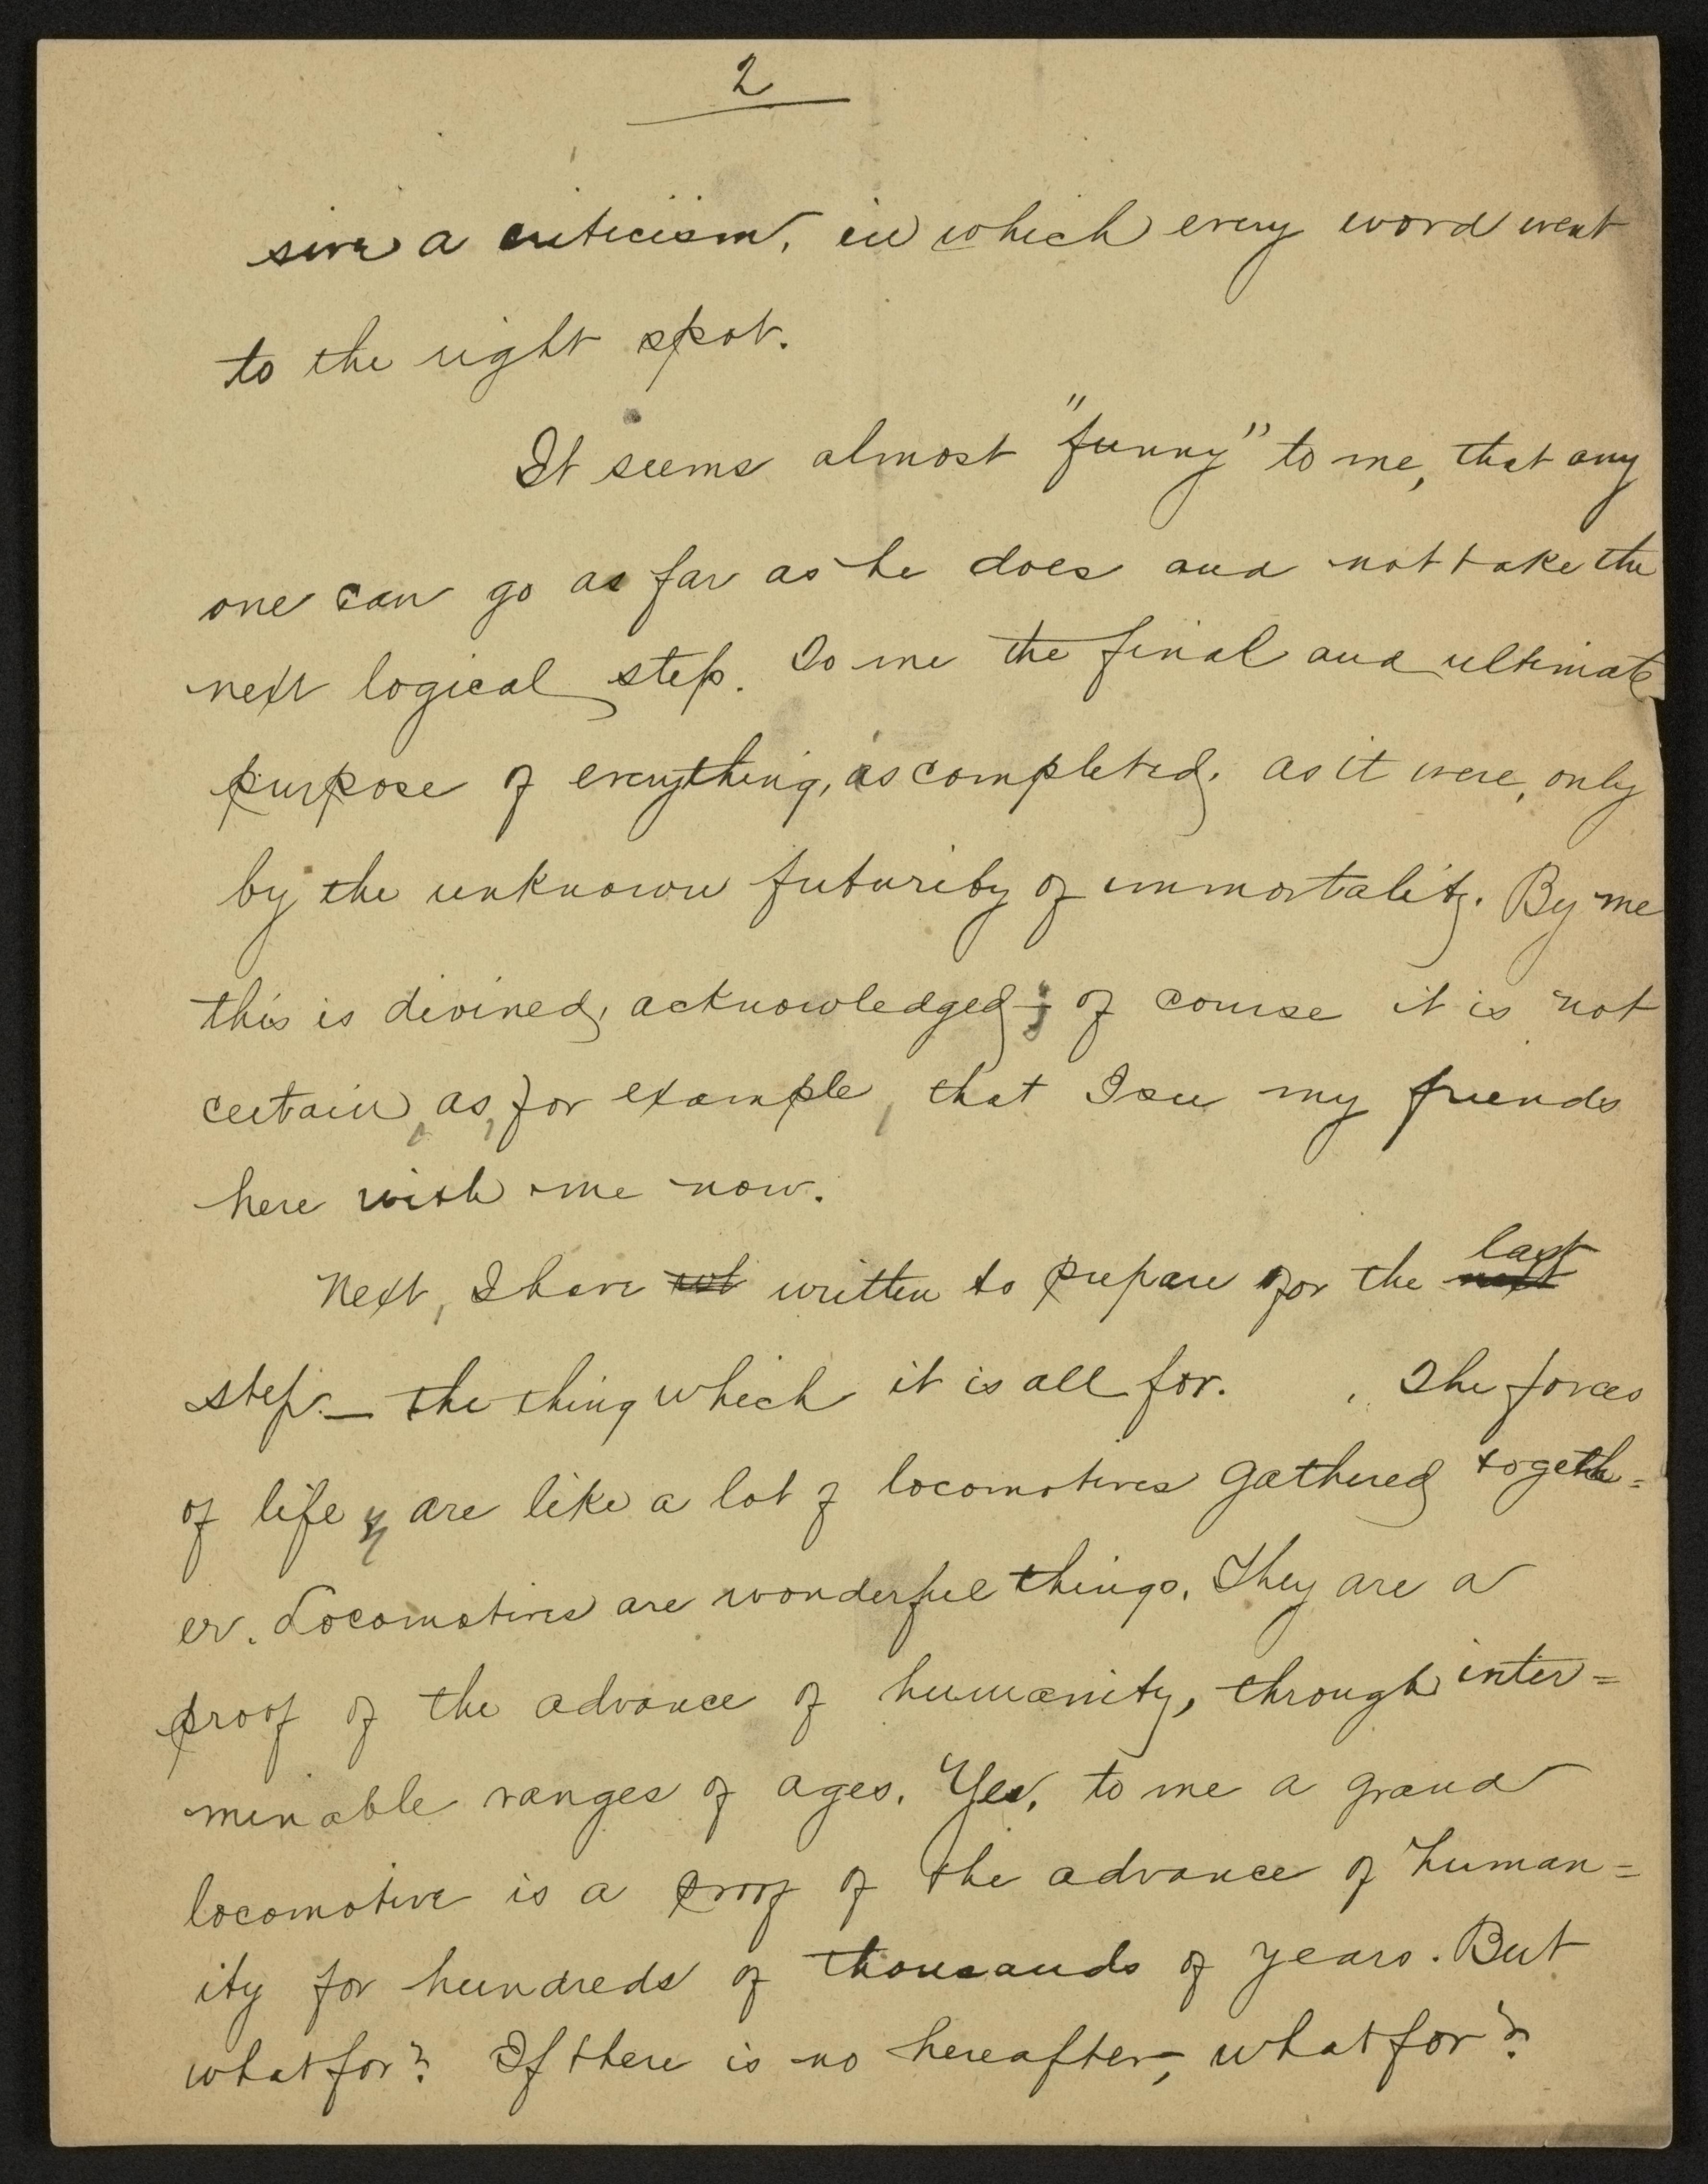 2
sive a criticism, in which every word went
to the right spot.
It seems almost "funny" to me, that any
one can go as far as he does and not take the
next logical step. To me the final and ultimate
purpose of everything, is completed, as it were, only
by the unknown futurity of immortality. By me
this is divined, acknowledged; of course it is not
certain, as, for example, that I see my friends
here with me now.
Next, I have not written to prepare for the last
next
step — the thing which it is all for. The forces
of life, are like a lot of locomotives gathered togeth=
er. Locomotives are wonderful things. They are a
proof of the advance of humanity, through inter=
minable ranges of ages. Yes, to me a grand
locomotive is a proof of the advance of human=
ity for hundreds of thousands of years. But
what for? If there is no hereafter, what for?